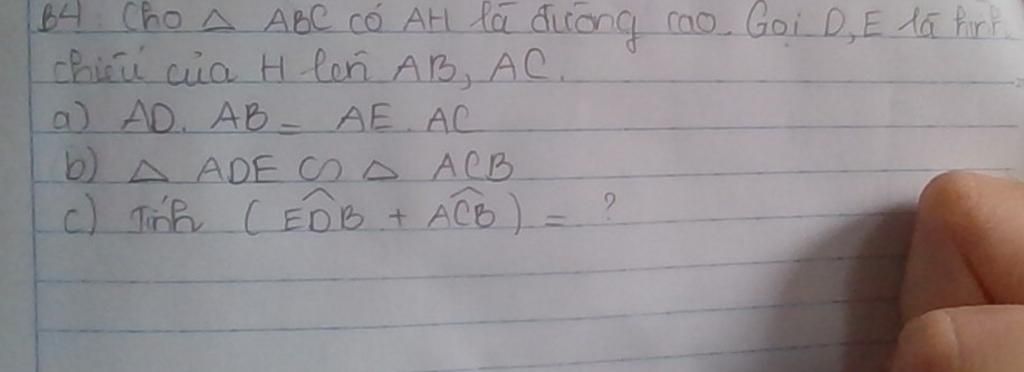 B4: Cho △ ABC có AH là đường cao. Gọi D, E là hình
chiếu của H lên AB, AC.
a) AD. AB = AE. AC
b) △ ADE ∽ △ ACB
c) Tính (\widehat{EDB} + \widehat{ACB}) = ?